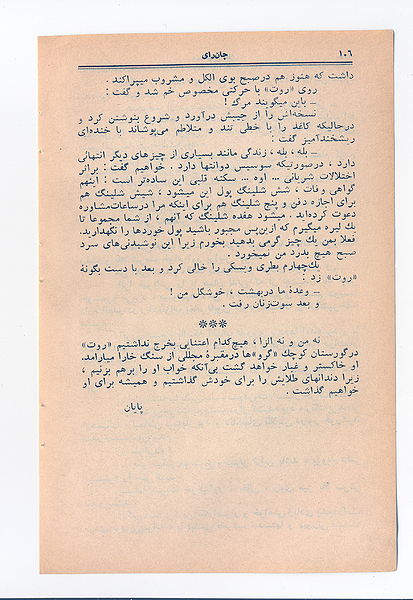 ۱۰۶ جان‌رای
داشت که هنوز هم در صبح بوی الکل و مشروب میپراکند .
روی «روت» با حرکتی مخصوص خم شد و گفت :
ــ باین میگویند مرگ !
نسخه‌اش را از جیبش درآورد و شروع بنوشتن کرد و
درحالیکه کاغذ را با خطی تند و متلاطم می‌پوشاند با خنده‌ای
ریشخندآمیز گفت :
ــ بله ، بله ، زندگی مانند بسیاری از چیزهای دیگر انتهائی
دارد ، درصورتیکه سوسیس دوانتها دارد . خواهیم گفت : براثر
اختلالات شریانی ... اوه ... سکته قلبی این ساده‌تر است : اینهم
گواهی وفات ، شش شلینگ پول این میشود ، شیش شلینگ هم
برای اجازه دفن و پنج شلینگ هم برای اینکه مرا درساعات‌مشاوره
دعوت کرده‌اید . میشود هفده شلینگ که آنهم ، از شما مجموعا تا
یك لیره میگیرم که ازین‌پس مجبور باشید پول خوردها را نگهدارید.
فعلا بمن یك چیز گرمی بدهید بخورم زیرا این نوشیدنی‌های سرد
صبح هیچ بدرد من نمیخورد .
یك‌چهارم بطری ویسکی را خالی کرد و بعد با دست بگونهٔ
«روت» زد :
ــ وعدهٔ ما دربهشت ، خوشگل من !
و بعد سوت‌زنان رفت .
***
نه من و نه الزا ، هیچ‌کدام اعتنایی بخرج نداشتیم «روت»
درگورستان کوچك «گرو»ها درمقبرهٔ مجللی از سنگ خارا میارامد.
او خاکستر و غبار خواهد گشت بی‌آنکه خواب او را برهم بزنیم ،
زیرا دندانهای طلایش را برای خودش گذاشتیم و همیشه برای او
خواهیم گذاشت .
پایان